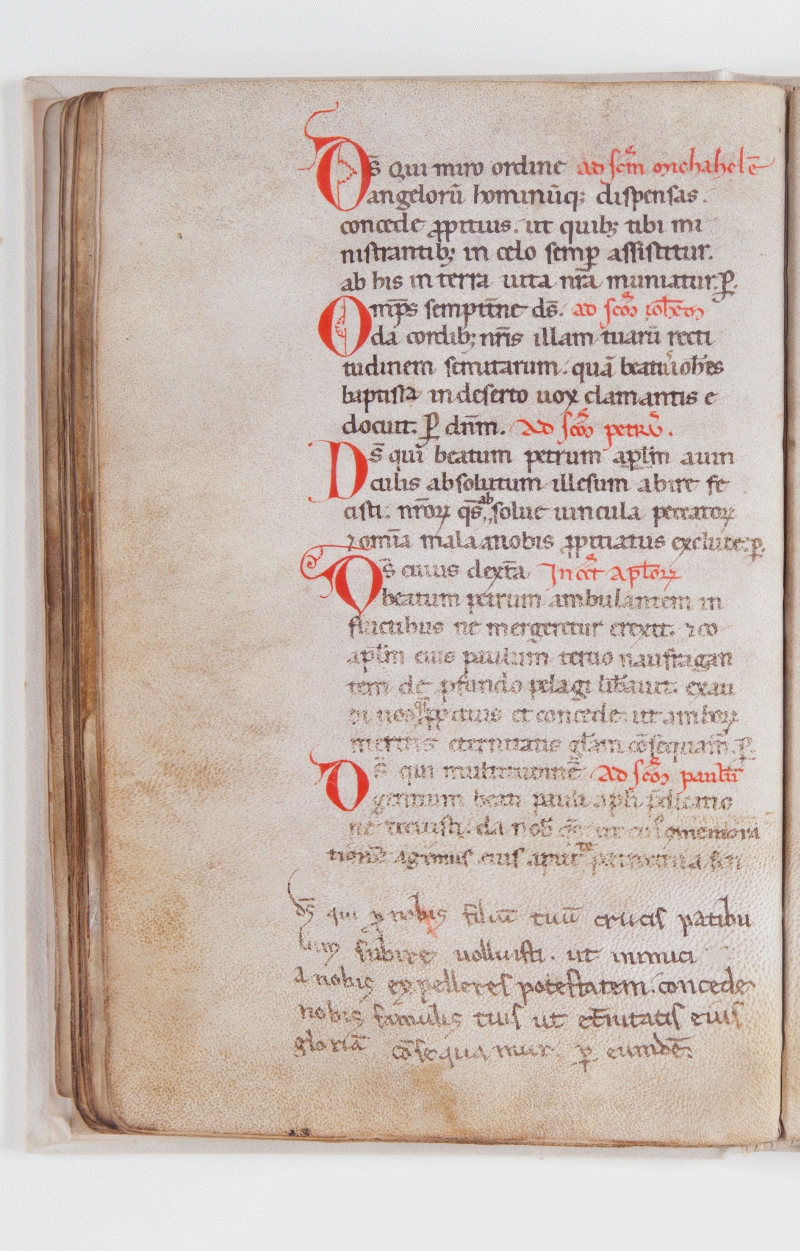 Ds̄ Qui miro ordine ad sc̄m michahelē
angeloru̅ hominu̅q; dispensas.
concede ꝓpitius. ut quib; tibi mi
nistrantib; in celo semꝑ assistitur.
ab his in terra uita nr̄a muniatur. ꝑ.
Omps̄ sempit̄ne ds̄. ad sc̄m ioh̄em
da cordib; nr̄is illam tuaru̅ recti
tudinem semitarum. quā beatus ioh̄es
baptista in deserto uox clamantis e
docuit. ꝑ dn̄m. Ad sc̄m petrū.
Ds̄ qui beatum petrum apl̄m a uin
culis absolutum illesum abire fe
cisti. nr̄oꝝ qs̄ ab solue uincula peccatoꝝ
⁊ omīa mala a nobis ꝓpitiatus exclude. ꝑ.
Ds̄ cuius dext̄a In apl̄oꝝ
beatum petrum ambulantem in
fluctibus ne mergeretur erexit. ⁊ co
apl̄m eius paulum tertio naufragan
tem de ꝓfundo pelagi lib̄auit. exau
di nos ꝓpitius et concede. ut amboꝝ
meritis eternitatis gl̄am cōsequam̄. ꝑ.
Ds̄ qui multitudinē Ad sc̄m paulū
gentium beati pauli apl̄i p̄dicatio
ne da nob̄ qs̄ ut cuius
eius apud te
ds̄ qui ꝓ nobis filiū tuū crucis patibu
lum subire uoluisti. ut inimici
a nobis expelleres potestatem. concede
nobis famulis tuis ut et̄nitatis eius
gloriā cōsequamur. ꝑ eumdē.